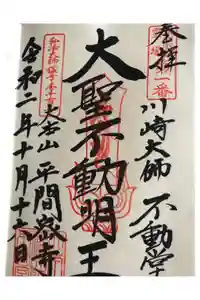 參拝
川崎大師 不動堂
一番
大聖不動明王
大本山 平間寺
令和二年十月十六日